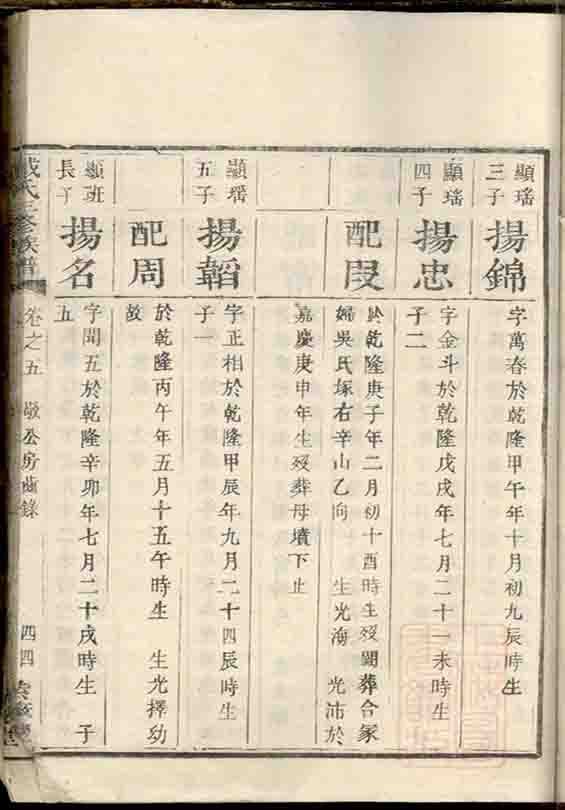 顯瑤
三子
揚錦
字萬春於乾隆甲午年十月初九辰時生
顯瑤
四子
揚忠
字金斗於乾隆戊戌年七月二十一未時生
子二
配段
於乾隆庚子年二月初十酉時生歿閏葬合冢
婦吳氏塚右辛山乙向 生光海 光沛於
嘉慶庚申年生歿葬母墳下止
顯瑤
五子
揚韜
字正相於乾隆甲辰年九月二十四辰時生
子一
配周
於乾隆丙午年五月十五午時生 生光擇幼
故
顯班
長子
揚名
字聞五於乾隆辛卯年七月二十戌時生 子
五
戴氏三修族譜
卷之五 敬公房齒錄
四四